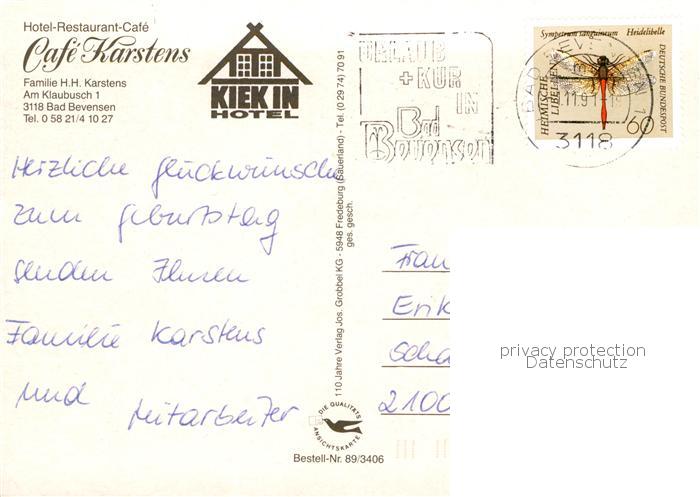 Hotel-Restaurant-Café
Café Karstens
Familie H.H. Karstens
Am Klaubusch 1
3118 Bad Bevensen
Tel. 0 58 21/4 10 27
KIEK IN
HOTEL
URLAUB
+ KUR
IN
Bad
Bevensen
Sympetrum sanguineum Heidelibelle
HEIMISCHE
LIBELLEN
DEUTSCHE BUNDESPOST
60
3118
Herzliche Glückwünsche
zum Geburtstag
senden Ihnen
Familie Karstens
und Mitarbeiter
110 Jahre Verlag Jos. Grobbel KG - 5948 Fredeburg (Sauerland) - Tel. (0 29 74) 70 91
ges. gesch.
Frau
Erik
Scha
2100
privacy protection
Datenschutz
DIE QUALITÄTS
ANSICHTSKARTE
Bestell-Nr. 89/3406